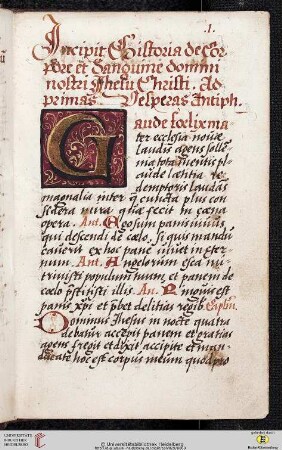 .I.
Incipit Historia de Cor
pore et Sanguine domini
nostri Jhesu Christi. Ad
primas Vesperas Antiph.
Gaude foelix ma
ter ecclesia noue
laudis agens
ma tota mentis pl
aude laetitia re
demptoris laudās
magnalia inter q cuncta plus con
sidera mira qua fecit in cana
opera. Ant. Ego sum panis uiuus
qui descendi de coelo, Si quis mandu
cauerit ex hoc pane uiuet in eter
num. Ant. Angelorum esca nu
triuisti populum tuum, et panem de
coelo illis. An. P
panis xpi et pbet delitias regib. Capłm.
Dominus Jhesus in nocte qua tra
debatur accepit panem et gratias
agens fregit et dixit accipite et man
ducate hoc est corpus meum quod pro
UNIVERSITÄTS-
BIBLIOTHEK
HEIDELBERG
© Universitätsbibliothek Heidelberg
gefördert durch